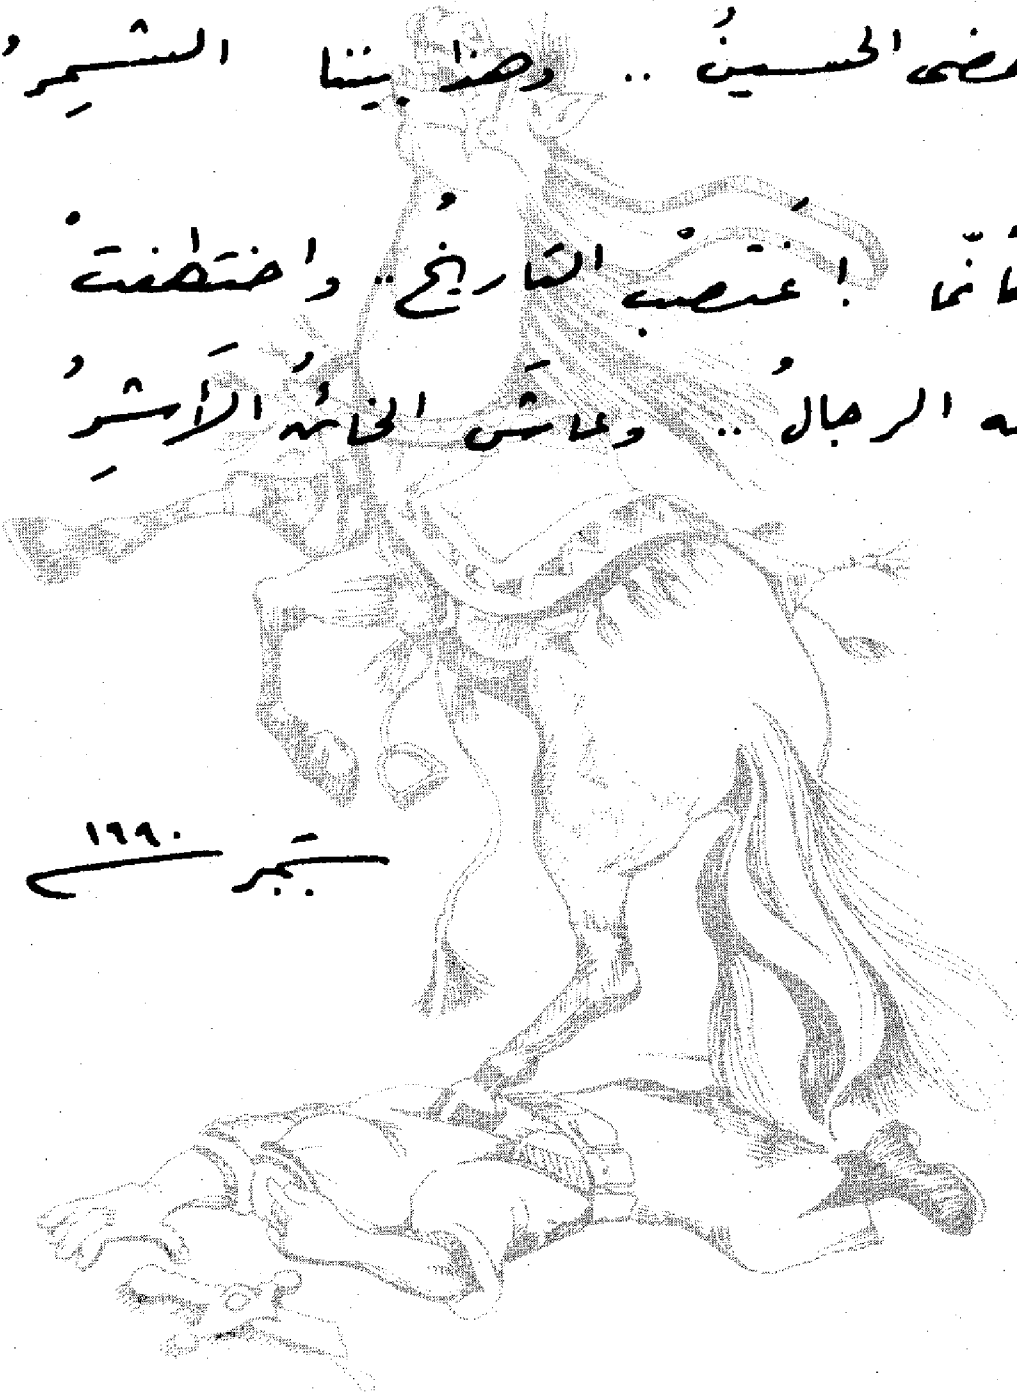 مضى الحسينُ .. وهذا بيننا الشمِرُ
كأنّما اغتُصبْ التاريخُ .. واختطفتْ
الرجالُ .. وعاشَ الخائنُ الأَشِرُ
١٩٩٠